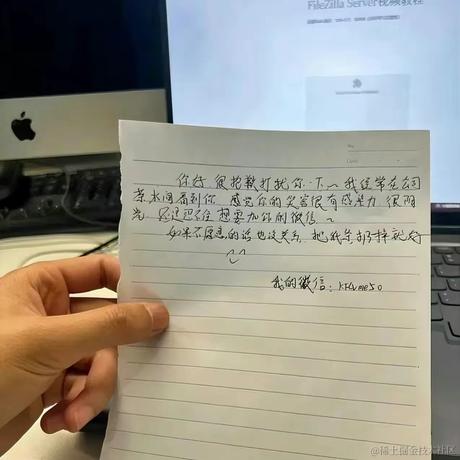 FileZilla Server视频教程
No
Date
你好 很抱歉打扰你一下~ 我经常在公司
茶水间看到你 感觉你的笑容很有感染力 很阳
光 忍不住 想要加你的微信~
如果不愿意的话也没关系 把纸条扔掉就好
我的微信:
@稀土掘金技术社区